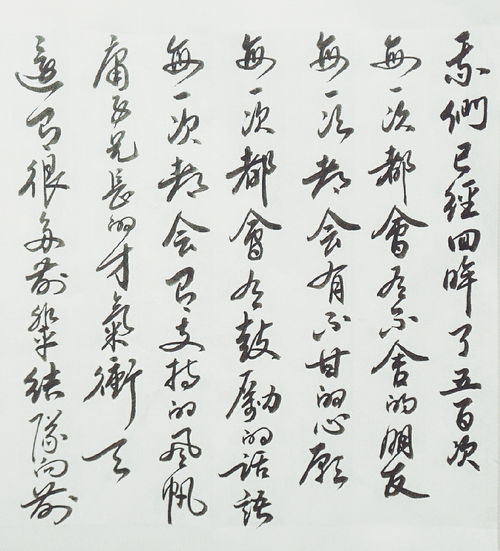 我們已經回眸了五百次
每一次都會有不舍的朋友
每一次都会有不甘的心願
每一次都會有鼓勵的話語
每一次都会有支持的风帆
庸兄長的才氣衝天
還有很多前輩結隊向前